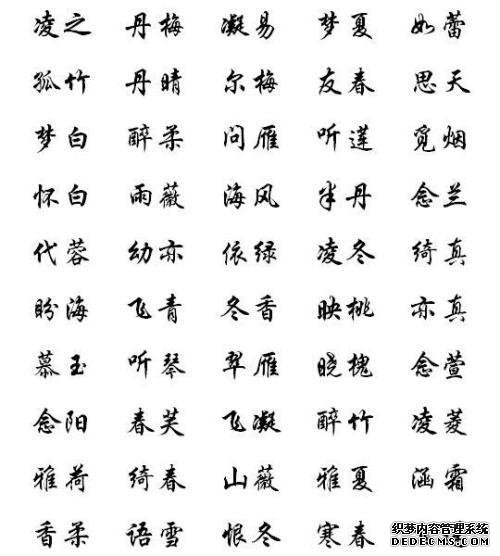 凌之 丹梅 凝易 梦夏 如蕾
孤竹 丹晴 尔梅 友春 思天
梦白 醉柔 问雁 听莲 觅烟
怀白 雨薇 海风 半丹 念兰
代蓉 幼亦 依绿 凌冬 绮真
盼海 飞青 冬香 映桃 亦真
慕玉 听琴 翠雁 晓槐 念萱
念阳 春芙 飞凝 醉竹 凌菱
雅荷 绮春 山薇 雅夏 涵霜
香柔 语雪 恨冬 寒春
织梦内容管理系统
DEDECMS.COM